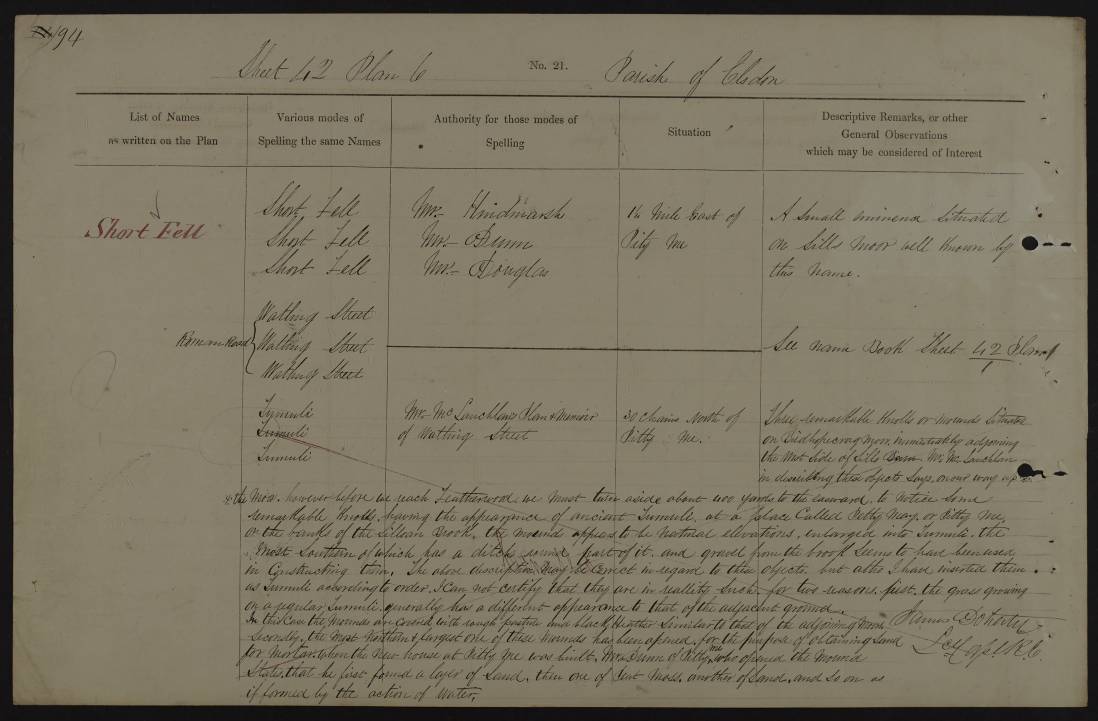 94
Sheet 42 Plan 6
No. 21.
Parish of Elsdon
List of Names
as written on the Plan
Various modes of
Spelling the same Names
Authority for those modes of
Spelling
Situation
Descriptive Remarks, or other
General Observations
which may be considered of Interest
Short Fell
Short Fell
Short Fell
Short Fell
Mr. Hindmarsh
Mr. Dunn
Mr. Douglas
1¼ Mile East of
Pity Me
A Small eminence Situated
on Sills moor well Known by
this name.
Roman Road
Watling Street
Watling Street
Watling Street
See name Book Sheet 42 Plan
Tumuli
Tumuli
Tumuli
Mr. Mc Lauchlan's Plan & Memoir
of Watling Street
30 Chains North of
Pitty Me.
Three remarkable Knolls or mounds Situate
on Birdhopecraig Moor, immediately adjoining
the West Side of Sills Burn. Mr. Mc. Lauchlan
in describing these objects Says, on our way up
the Moor, however before we reach Featherwood, we must turn aside about 400 yards to the eastward, to notice Some
remarkable Knolls, having the appearance of ancient Tumuli, at a place Called Petty May, or Pitty me,
on the banks of the Sillean Brook, the mound appears to be natural elevations, enlarged into Tumuli. the
Most Southern of which has a ditch round part of it, and gravel from the brook Seems to have been used
in Constructing them, The above description May be Correct in regard to these objects. but altho I have inserted them
as Tumuli according to order, I Can not certify that they are in reallity Such, for two reasons. first. the grass growing
on a regular Tumuli. generally has a different appearance to that of the adjacent ground.
In this Case the Mounds are Covered with rough pasture and black Heather Similar to that of the adjoining Moor
Secondly, the Most Northern & largest one of these Mounds has been opened, for the purpose of obtaining Sand
for Mortar. When the New house at Pitty Me was built, Mr. Dunn of Pitty me who opened the Mound
States, that he first found a layer of Sand, then one of Peat Moss, another of Sand, and So on as
if formed by the action of Water,
James Doherty